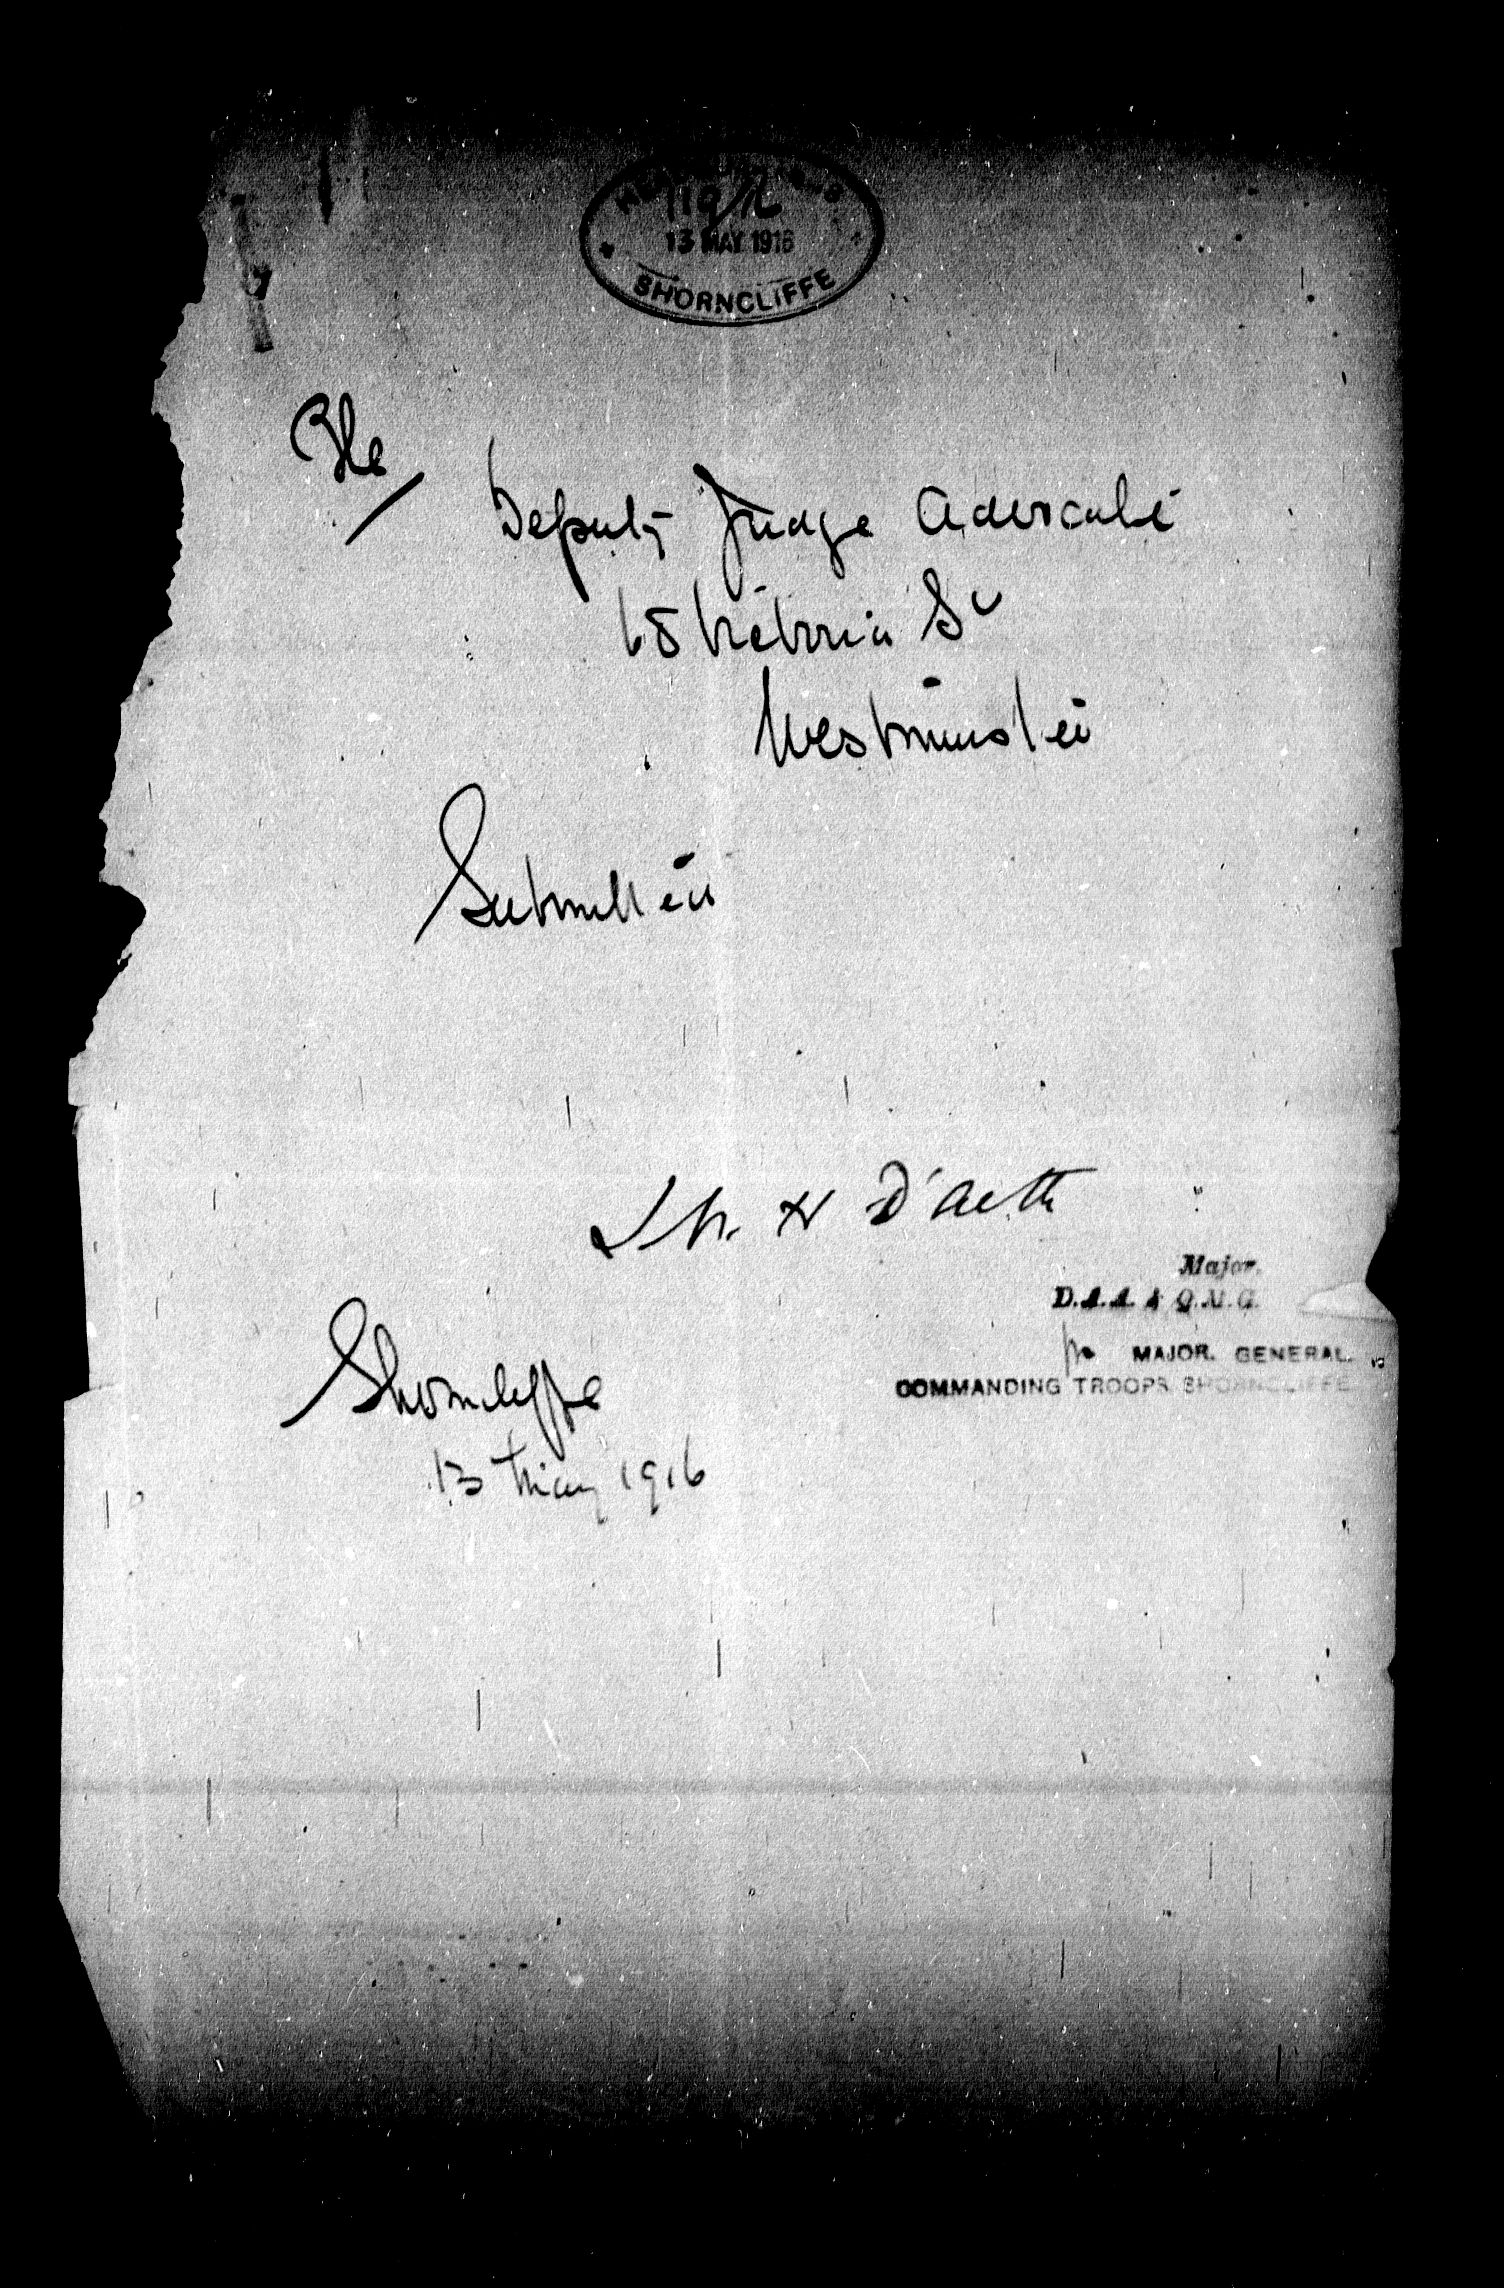 HEADQUARTERS
13 MAY 1916
SHORNCLIFFE
The
Deputy Judge Advocate
68 Victoria St
Westminster
Submitted
D'Aeth
Major.
D.A.A. & Q.M.G.
for MAJOR. GENERAL.
COMMANDING TROOPS SHORNCLIFFE
Shorncliffe
13 May 1916